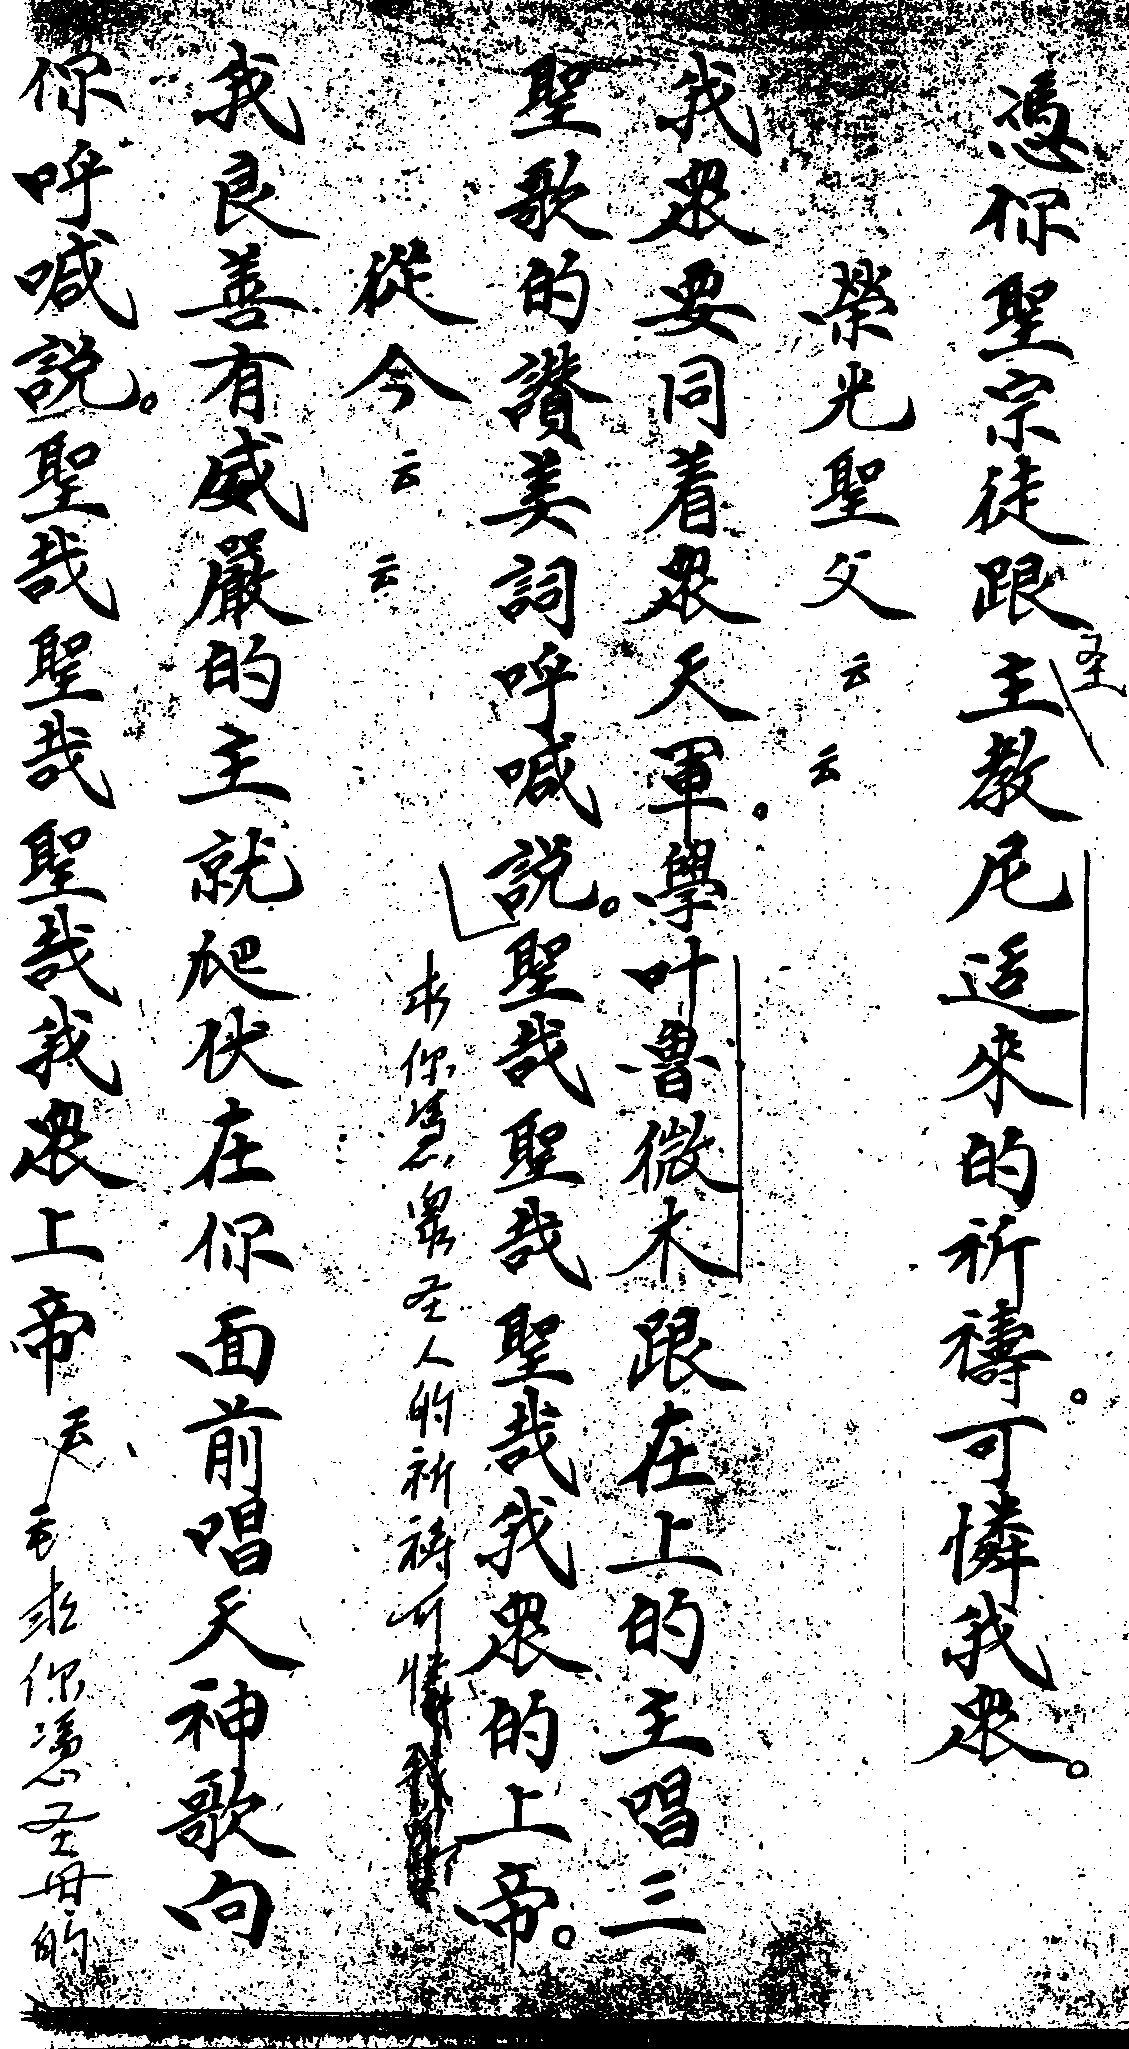 憑你聖宗徒跟主教尼适來的祈禱。可憐我眾。
圣
榮光聖父云云
我眾要同着眾天軍。學叶嚕微木跟在上的主唱三
聖歌的讃美詞呼喊說。聖哉聖哉聖哉我眾的上帝。
求你慿眾圣人的祈祷可憐我眾
從今云云
我良善有威嚴的主就爬伏在你面前唱天神歌向
你呼喊説。聖哉聖哉聖哉我眾上帝云云求你慿圣母的